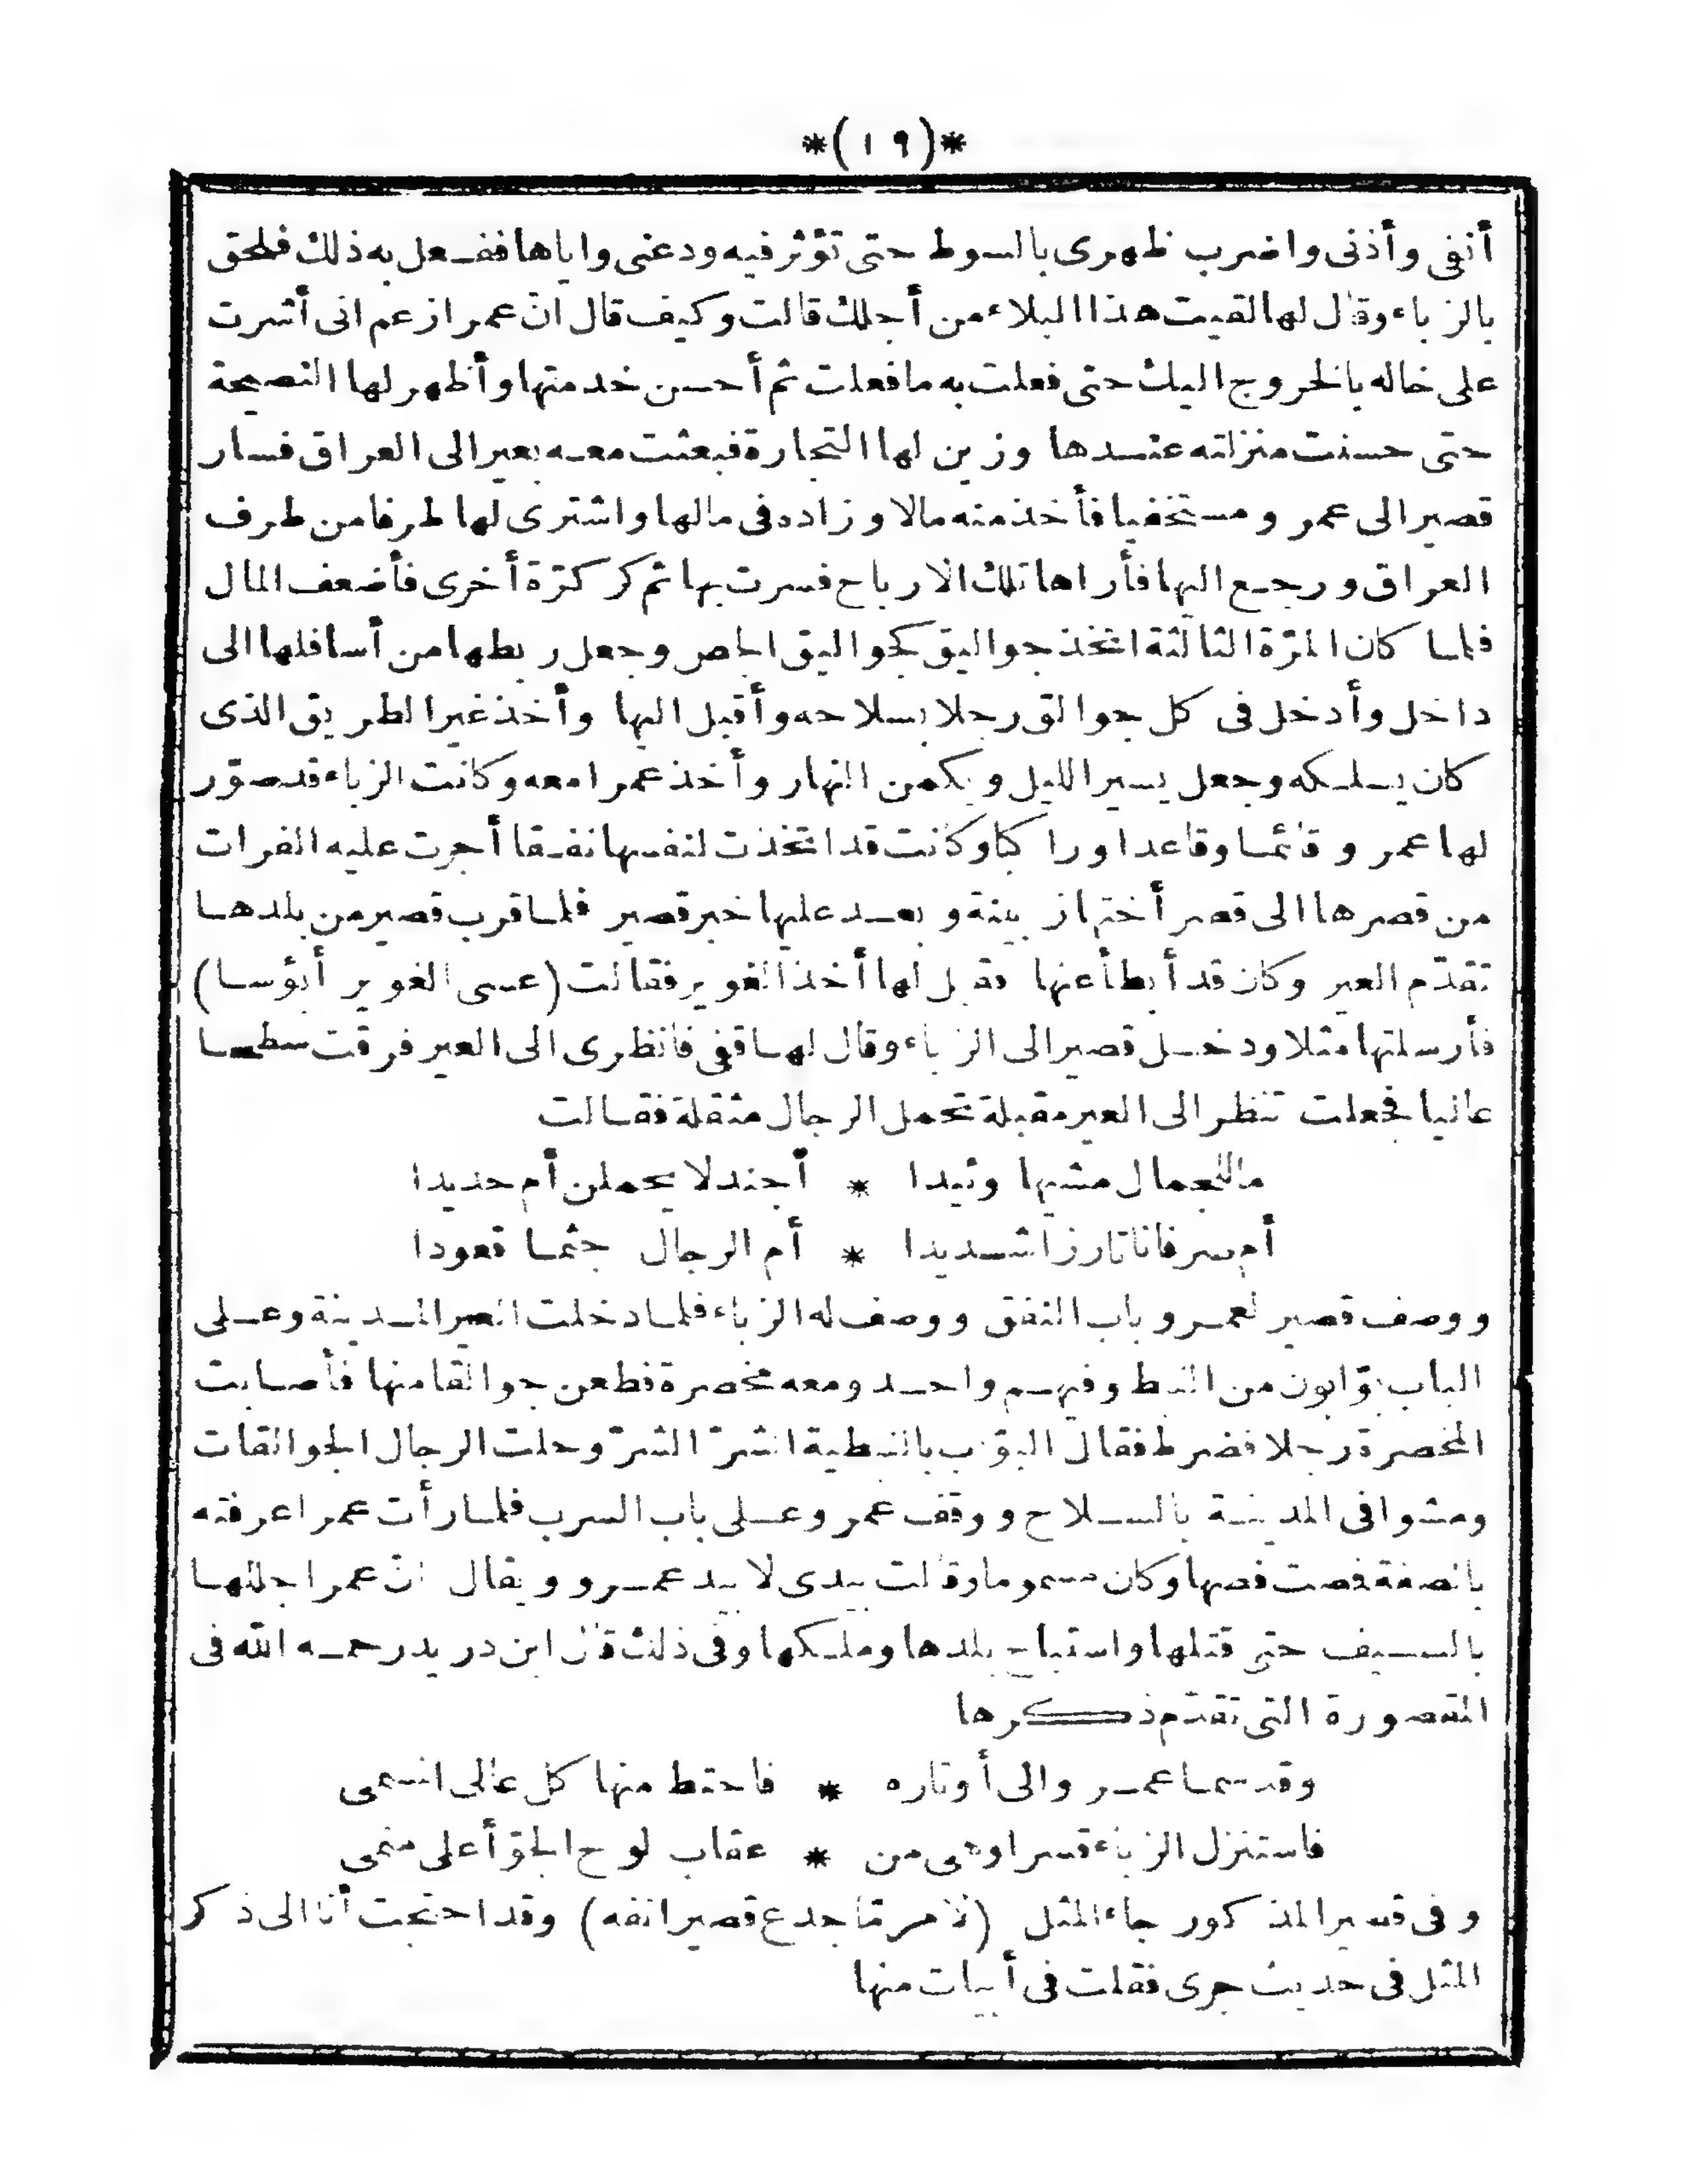 *(١٩)*
أنفى وأذنى واضرب ظهرى بالسوط حتى تؤثر فيه ودعنى واياها ففعل به ذلك فلحق
بالزباء وقال لها لقيت هذا البلاء من أجلك قالت وكيف قال انّ عمرا زعم انى أشرت
على خاله بالخروج اليك حتى فعلت به ما فعلت ثم أحسن خدمتها وأظهر لها النصيحة
حتى حسنت منزلته عندها وزين لها التجارة فبعثت معه بعير الى العراق فسار
قصير الى عمرو مستخفيا فأخذ منه مالا وزاده فى مالها واشترى لها طرفا من طرف
العراق ورجع اليها فأراها تلك الارباح فسرت بها ثم كر كرّة أخرى فأضعف المال
فلما كان المرّة الثالثة اتخذ جواليق كجواليق الجص وجعل ربطها من أسافلها الى
داخل وأدخل فى كل جوالق رجلا بسلاحه وأقبل اليها وأخذ غير الطريق الذى
كان يسلكه وجعل يسير الليل ويكمن النهار وأخذ عمرا معه وكانت الزباء قد صوّر
لها عمرو قائما وقاعدا وراكبا وكانت قد اتخذت لنفسها نفقا أجرت عليه الفرات
من قصرها الى قصر أختها زبينة وبعد عليها خبر قصير فلما قرب قصير من بلدها
تقدّم العير وكان قد أبطأ عنها فقيل لها أخذ الغوير فقالت (عسى الغوير أبؤسا)
فأرسلتها مثلا ودخل قصير الى الزباء وقال لها قفى فانظرى الى العير فرقت سطحا
عاليا فجعلت تنظر الى العير مقبلة تحمل الرجال مثقلة فقالت
ما للجمال مشيها وئيدا * أجندلا يحملن أم حديدا
أم صرفانا تارزا شديدا * أم الرجال جثما قعودا
ووصف قصير لعمرو باب النفق ووصف له الزباء فلما دخلت العير المدينة وعلى
الباب بوّابون من النبط وفيهم واحد ومعه مخصرة فطعن جوالقا منها فأصابت
المخصرة رجلا فضرط فقال البوّاب بالنبطية الشرّ الشرّ وحلت الرجال الجوالقات
ومشوا فى المدينة بالسلاح ووقف عمرو على باب السرب فلما رأت عمرا عرفته
بالصفة فمصت فصها وكان مسموما وقالت بيدى لا بيد عمرو ويقال انّ عمرا جللها
بالسيف حتى قتلها واستباح بلدها وملكها وفى ذلك قال ابن دريد رحمه الله فى
المقصورة التى تقدّم ذكرها
وقد سما عمرو الى أوتاره * فاحتط منها كل عالى المسمى
فاستنزل الزباء قسرا وهى من * عقاب لوح الجوّ أعلى منمى
وفى قصير المذكور جاء المثل (لأمر مّا جدع قصير انفه) وقد احتجت أنا الى ذكر
المثل فى حديث جرى فقلت فى أبيات منها